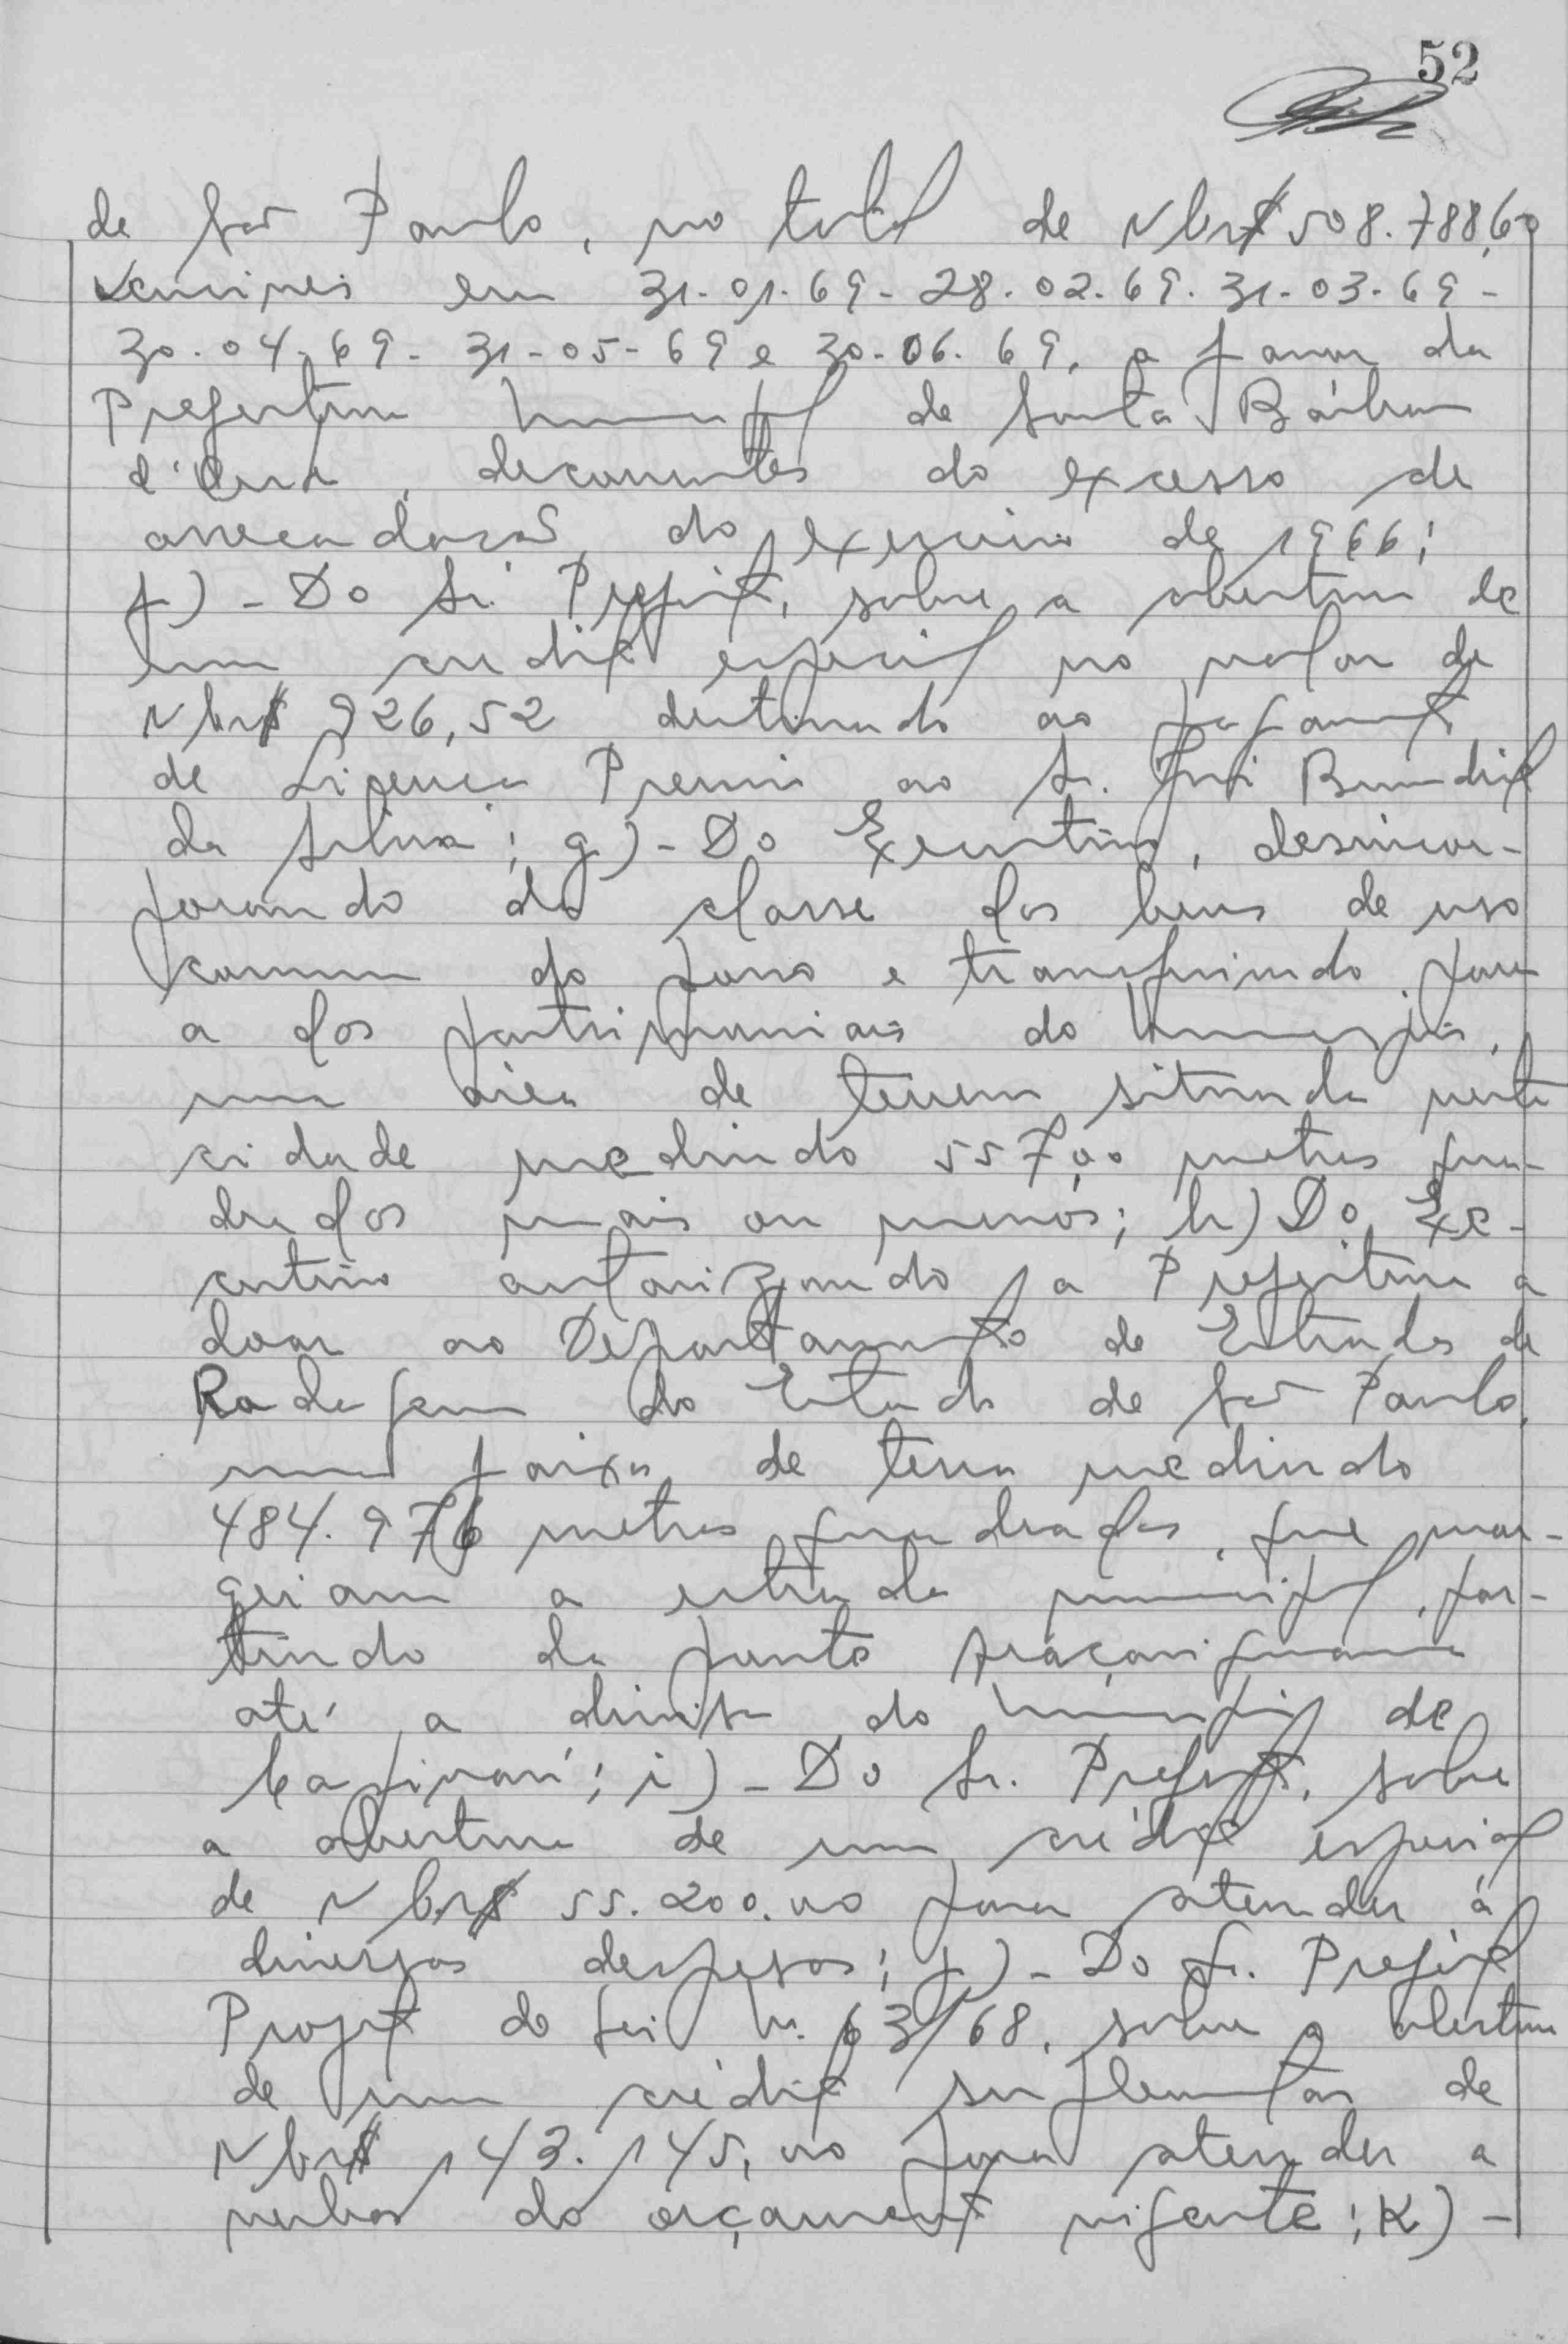 52
de São Paulo, no total de NCr$ 508.788,60
venciveis em 31-01-69- 28-02-69. 31-03-69-
30-04-69- 31-05-69 e 30-06-69, a favor da
Prefeitura Municipal de Santa Bárbara
d'Oeste, decorrentes do excesso de
arrecadação do exercicio de 1966;
f) - Do Sr. Prefeito, sobre a abertura de
um credito especial no valor de
NCr$ 926,52 destinado ao pagamento
de Licença Premio ao Sr. José Benedito
da Silva; g) - Do Executivo, desincor-
porando da classe dos bens de uso
comum do povo e transferindo para
a dos patrimoniais do Municipio,
uma área de terreno situada nesta
cidade medindo 557,00 metros qua-
drados mais ou menos; h) Do Exe-
cutivo autorizando a Prefeitura a
doar ao Departamento de Estradas de
Rodagem do Estado de São Paulo,
uma faixa de terra medindo
484.976 metros quadrados, que mar-
geiam a estrada municipal, par-
tindo da ponte
até a divisa do Municipio de
Capivarí; i) - Do Sr. Prefeito, sobre
a abertura de um crédito especial
de NCr$ 55.200,00 para atender á
diversas despesas; j) - Do Sr. Prefeito
Projeto de Lei n. 63/68, sobre a abertura
de um crédito suplementar de
NCr$ 143.145,00 para atender a
verbas do orçamento vigente; K) -